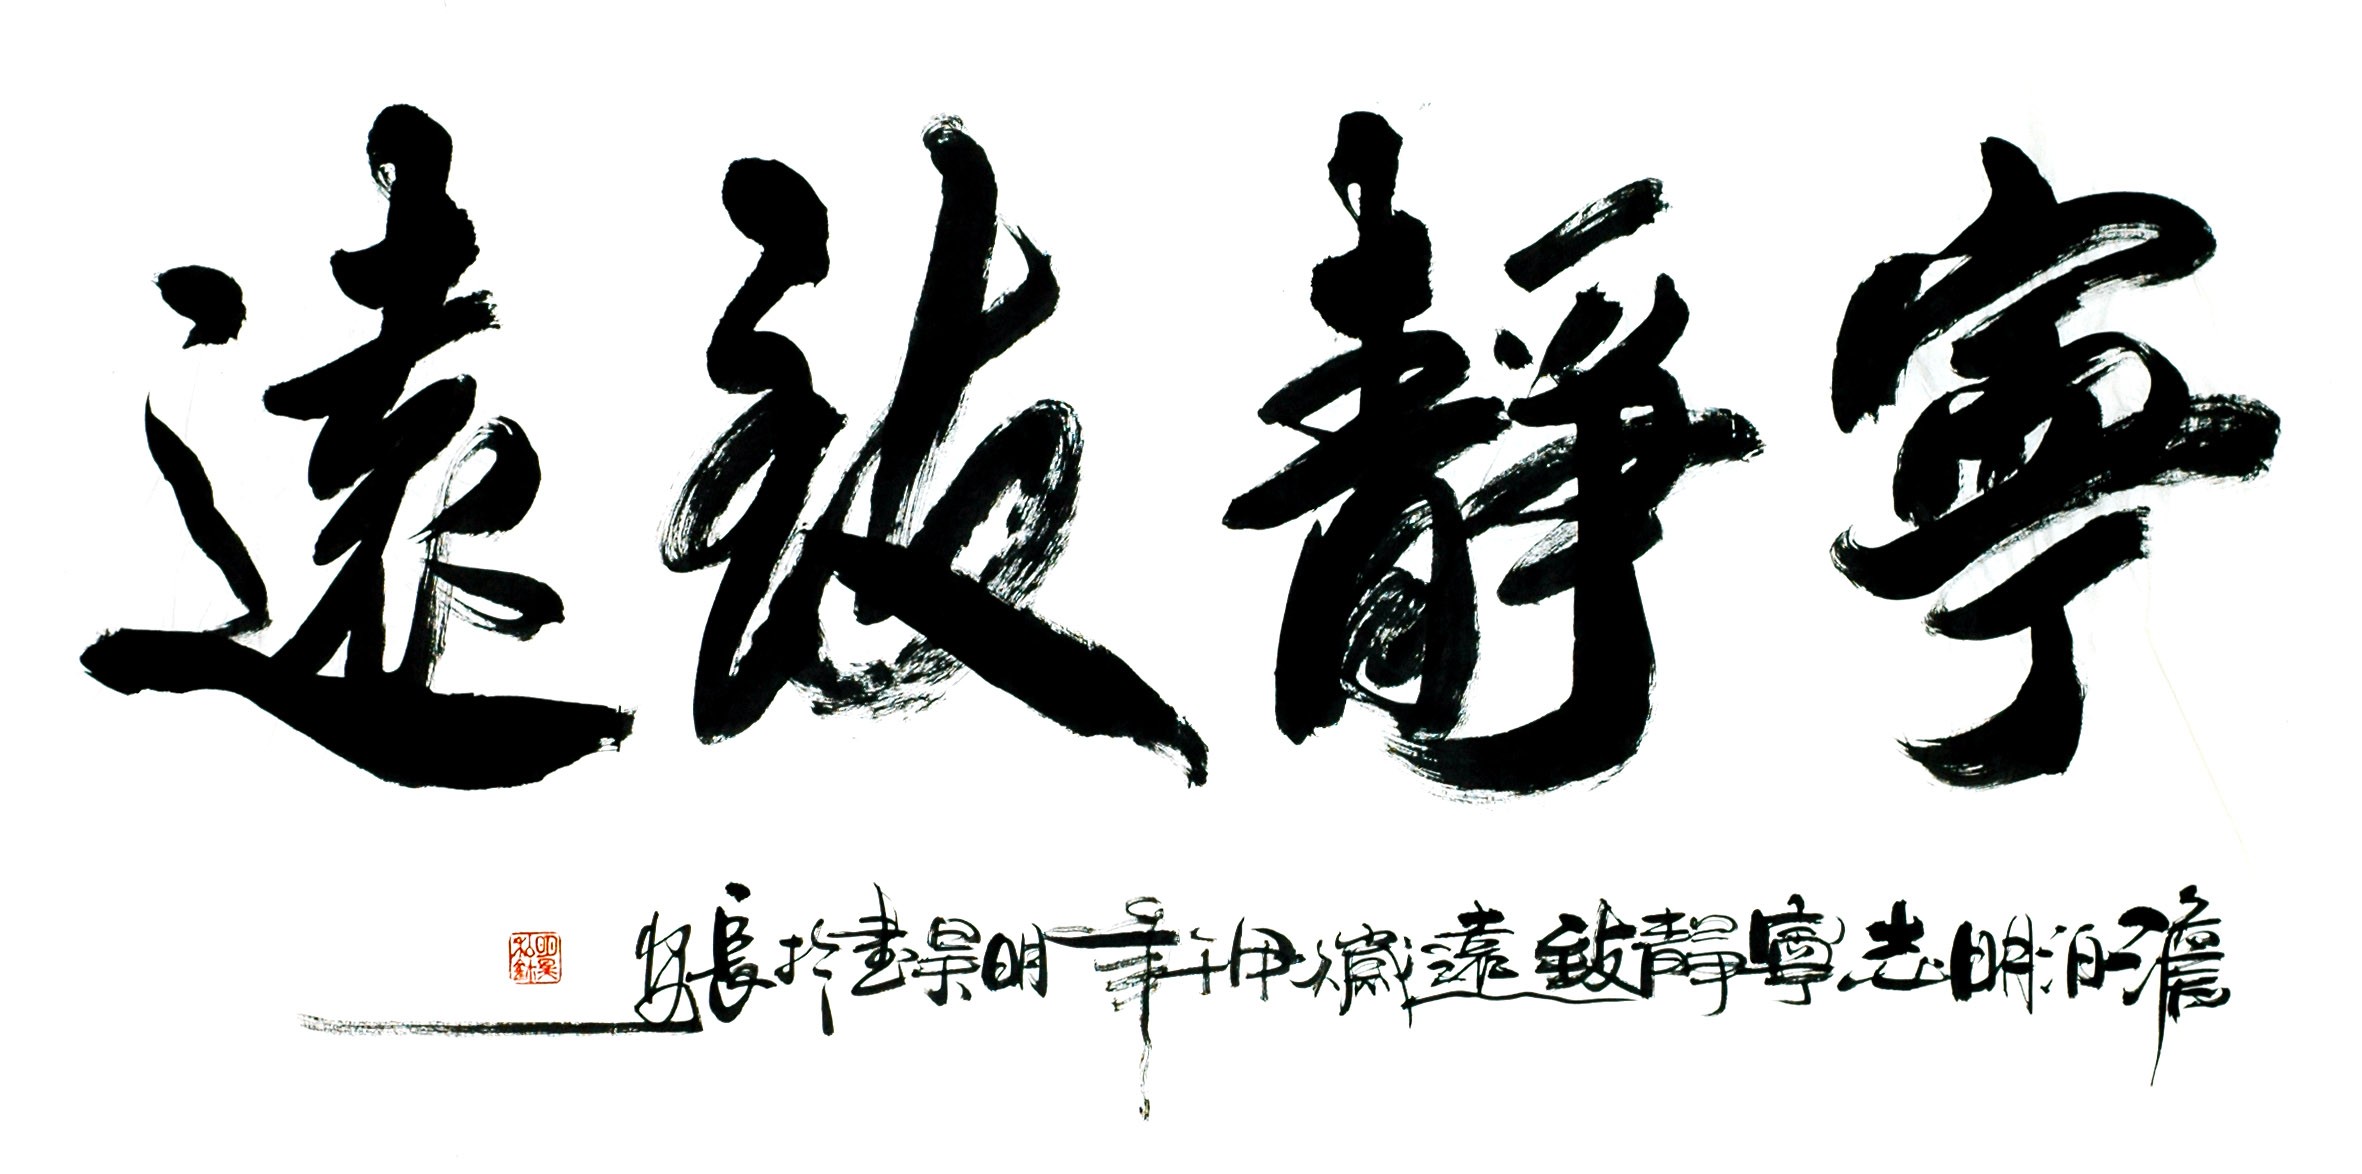 寧靜致遠
澹泊明志寧靜致遠歲甲午年明昊書於長安